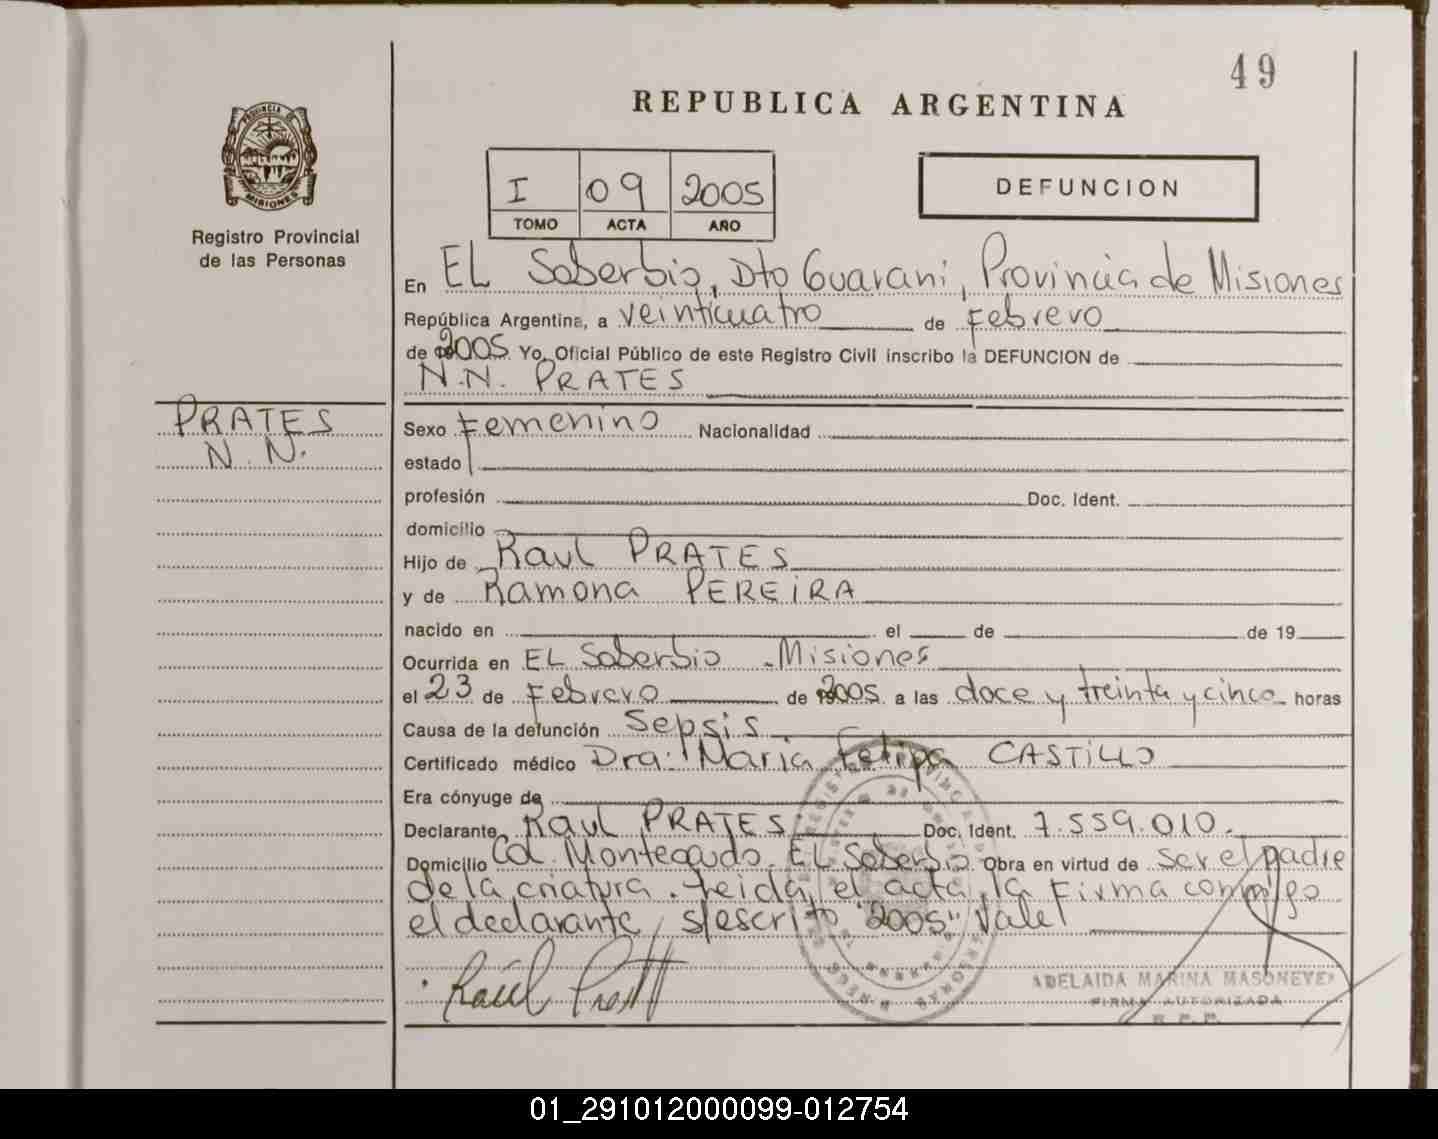 49
REPUBLICA ARGENTINA
PROVINCIA DE
MISIONES
Registro Provincial
de las Personas
I 09 2005
TOMO ACTA AÑO
DEFUNCION
En EL Soberbio, Dto Guarani, Provincia de Misiones
República Argentina, a veinticuatro de Febrero
de 2005. Yo, Oficial Público de este Registro Civil inscribo la DEFUNCION de
N.N. PRATES
PRATES
N. N.
Sexo Femenino Nacionalidad
estado
profesión Doc. Ident.
domicilio
Hijo de Raul PRATES
y de Ramona PEREiRA
nacido en el de de 19
Ocurrida en EL Soberbio - Misiones
el 23 de Febrero de 2005 a las doce y treinta y cinco horas
Causa de la defunción Sepsis
Certificado médico Dra: Maria Felipa CASTiLLO
Era cónyuge de
Declarante Raul PRATES Doc. Ident. 7.559.010.
Domicilio Col. Monteagudo. EL Soberbio Obra en virtud de ser el padre
de la criatura. Leida el acta la Firma conmigo
el declarante, s/escrito "2005" Vale
Raúl
ADELAIDA MARINA MASONEYER
FIRMA AUTORIZADA
R. P. P.
01_291012000099-012754